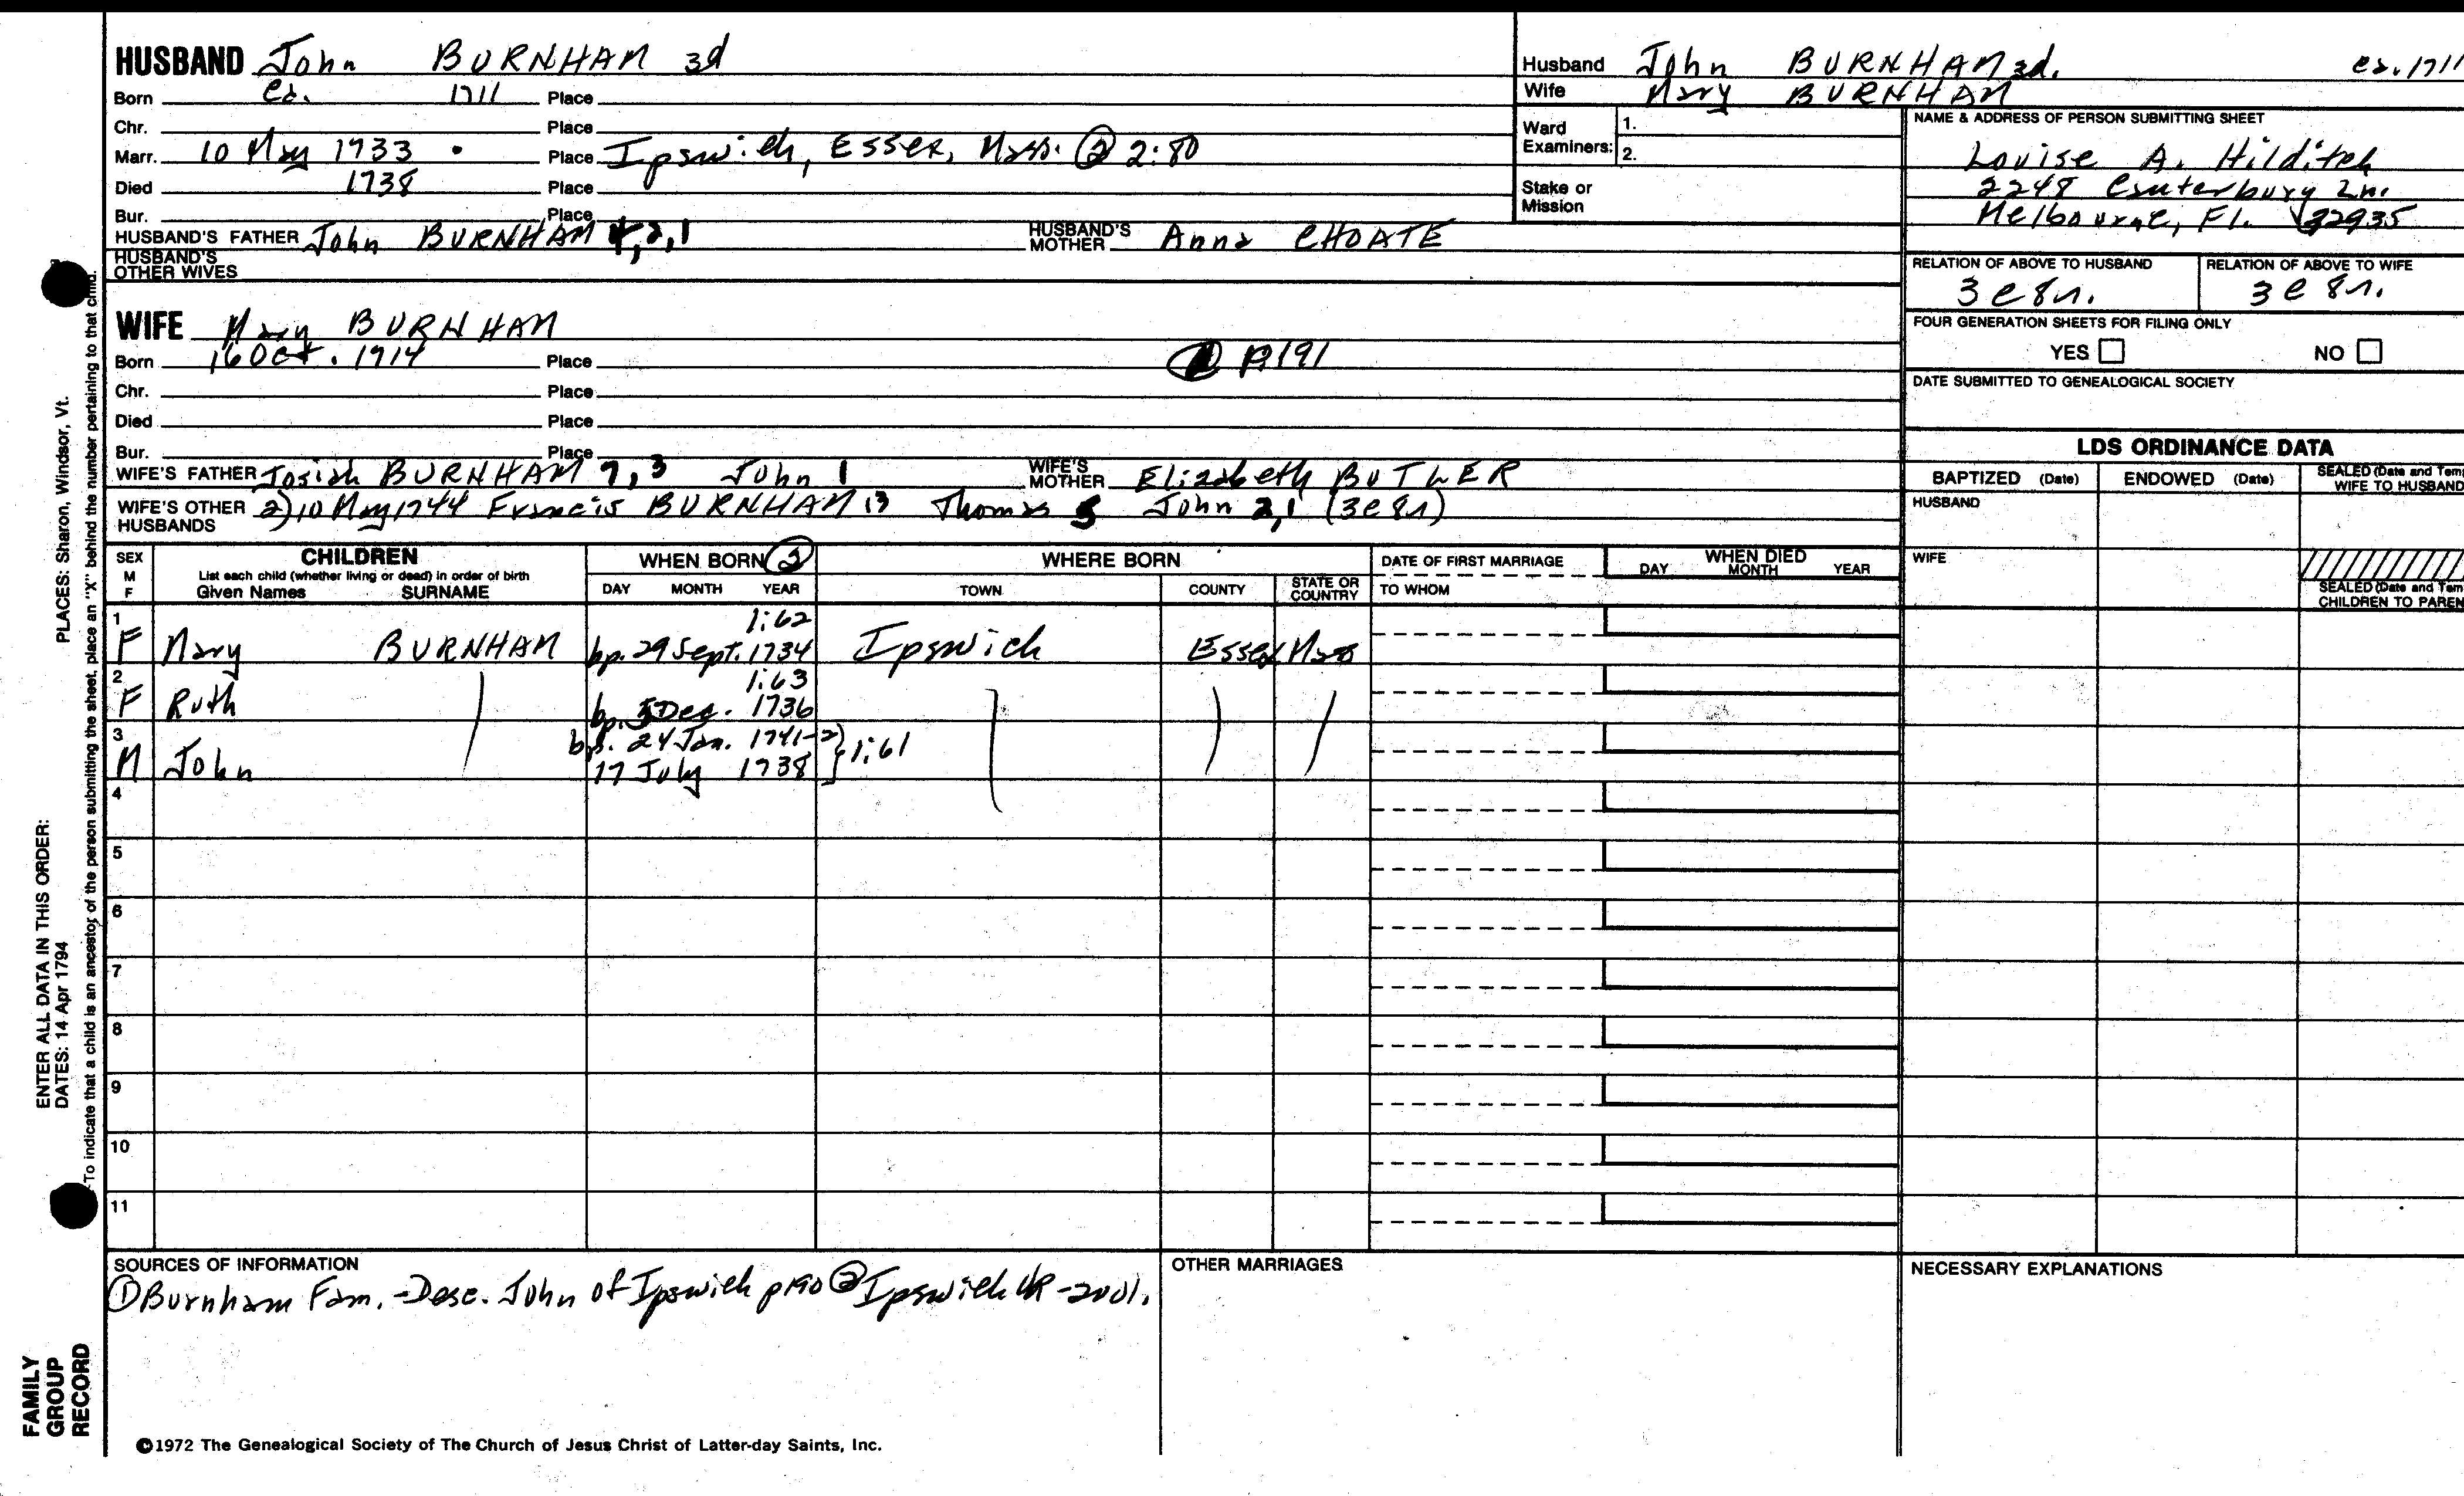 HUSBAND John BURNHAM 3d
Born ca. 1711 Place
Chr. Place
Marr. 10 May 1733 Place Ipswich, Essex, Mass. ② 2:80
Died 1738 Place
Bur. Place
HUSBAND'S FATHER John BURNHAM 4,2,1 HUSBAND'S MOTHER Anna CHOATE
HUSBAND'S OTHER WIVES
WIFE Mary BURNHAM
Born 16 Oct. 1714 Place p191
Chr. Place
Died Place
Bur. Place
WIFE'S FATHER Josiah BURNHAM 7,3 John 1 WIFE'S MOTHER Elizabeth BUTLER
WIFE'S OTHER HUSBANDS 2) 10 May 1744 Francis BURNHAM 13 Thomas 5 John 2,1 (3c8r)
Husband John BURNHAM 3d. ca. 1711
Wife Mary BURNHAM
Ward Examiners: 1.
2.
Stake or Mission
NAME & ADDRESS OF PERSON SUBMITTING SHEET
Louise A. Hilditch
2248 Canterbury Ln.
Melbourne, Fl. 32935
RELATION OF ABOVE TO HUSBAND RELATION OF ABOVE TO WIFE
3c8r. 3c8r.
FOUR GENERATION SHEETS FOR FILING ONLY
YES NO
DATE SUBMITTED TO GENEALOGICAL SOCIETY
LDS ORDINANCE DATA
BAPTIZED (Date) ENDOWED (Date) SEALED (Date and Temp
WIFE TO HUSBAND
HUSBAND
WIFE
SEALED (Date and Tem
CHILDREN TO PAREN
SEX M F CHILDREN WHEN BORN ② WHERE BORN DATE OF FIRST MARRIAGE WHEN DIED
List each child (whether living or dead) in order of birth
Given Names SURNAME DAY MONTH YEAR TOWN COUNTY STATE OR COUNTRY TO WHOM DAY MONTH YEAR
1 1:62
F Mary BURNHAM bp. 29 Sept. 1734 Ipswich Essex Mass
2 1:63
F Ruth bp. 5 Dec. 1736
3 bp. 24 Jan. 1741-2 } 1:61
M John 17 July 1738
4
5
6
7
8
9
10
11
SOURCES OF INFORMATION
① Burnham Fam. - Desc. John of Ipswich p190 ② Ipswich VR - 2vol.
OTHER MARRIAGES
NECESSARY EXPLANATIONS
©1972 The Genealogical Society of The Church of Jesus Christ of Latter-day Saints, Inc.
PLACES: Sharon, Windsor, Vt.
ENTER ALL DATA IN THIS ORDER:
DATES: 14 Apr 1794
To indicate that a child is an ancestor of the person submitting the sheet, place an "X" behind the number pertaining to that child.
FAMILY GROUP RECORD